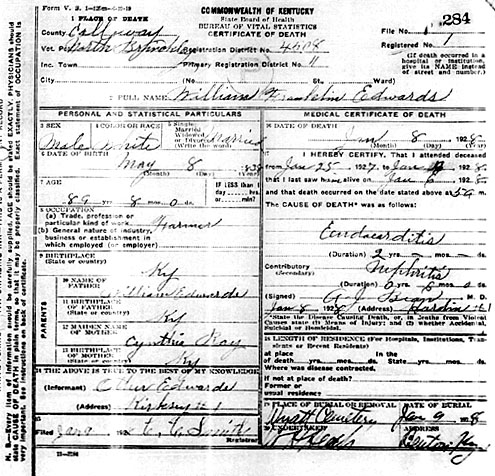 Form V. S. 1
COMMONWEALTH OF KENTUCKY
State Board of Health
BUREAU OF VITAL STATISTICS
CERTIFICATE OF DEATH
284
1 PLACE OF DEATH
County Calloway
File No.
Vot. North Brinkley Registration District No. 4508
Registered No. 1
Inc. Town Primary Registration District No. 11
(If death occurred in a hospital or institution, give its NAME instead of street and number.)
City (No. St. Ward)
2 FULL NAME William Franklin Edwards
PERSONAL AND STATISTICAL PARTICULARS
3 SEX Male
4 COLOR OR RACE White
5 Single Married Widowed or Divorced (Write the word) Married
6 DATE OF BIRTH May 8
(Month) (Day) (Year)
7 AGE 89 yrs. 8 mos. 0 ds.
IF LESS than 1 day hrs. or min.
8 OCCUPATION
(a) Trade, profession or particular kind of work Farmer
(b) General nature of industry, business or establishment in which employed (or employer)
9 BIRTHPLACE (State or country) Ky
PARENTS
10 NAME OF FATHER William Edwards
11 BIRTHPLACE OF FATHER (State or country) Ky
12 MAIDEN NAME OF MOTHER Cynthia Ray
13 BIRTHPLACE OF MOTHER (State or country) Ky
14 THE ABOVE IS TRUE TO THE BEST OF MY KNOWLEDGE
(Informant) Edwards
(Address) Kirksey #1
15 Filed Jan 9 192 Smith
Registrar
MEDICAL CERTIFICATE OF DEATH
16 DATE OF DEATH Jan 8 1928
(Month) (Day) (Year)
17 I HEREBY CERTIFY, That I attended deceased
from Jan 25 1927 to Jan 1928
that I last saw him alive on Jan 1928
and that death occurred on the date stated above at 5 a m.
The CAUSE OF DEATH* was as follows:
Endocarditis
(Duration) 2 yrs. mos. ds.
Contributory (Secondary) Nephritis
(Duration) 0 yrs. 6 mos. 0 ds.
(Signed) M. D.
Jan 8 1928 (Address) Hardin #1
*State the Disease Causing Death, or, in Deaths from Violent Causes state (1) Means of Injury; and (2) whether Accidental, Suicidal or Homicidal.
18 LENGTH OF RESIDENCE (For Hospitals, Institutions, Transients or Recent Residents)
At place of death yrs. mos. ds. State yrs. mos. ds.
Where was disease contracted,
if not at place of death?
Former or usual residence
19 PLACE OF BURIAL OR REMOVAL DATE OF BURIAL
Cemetery Jan 9 1928
20 UNDERTAKER ADDRESS
Benton Ky